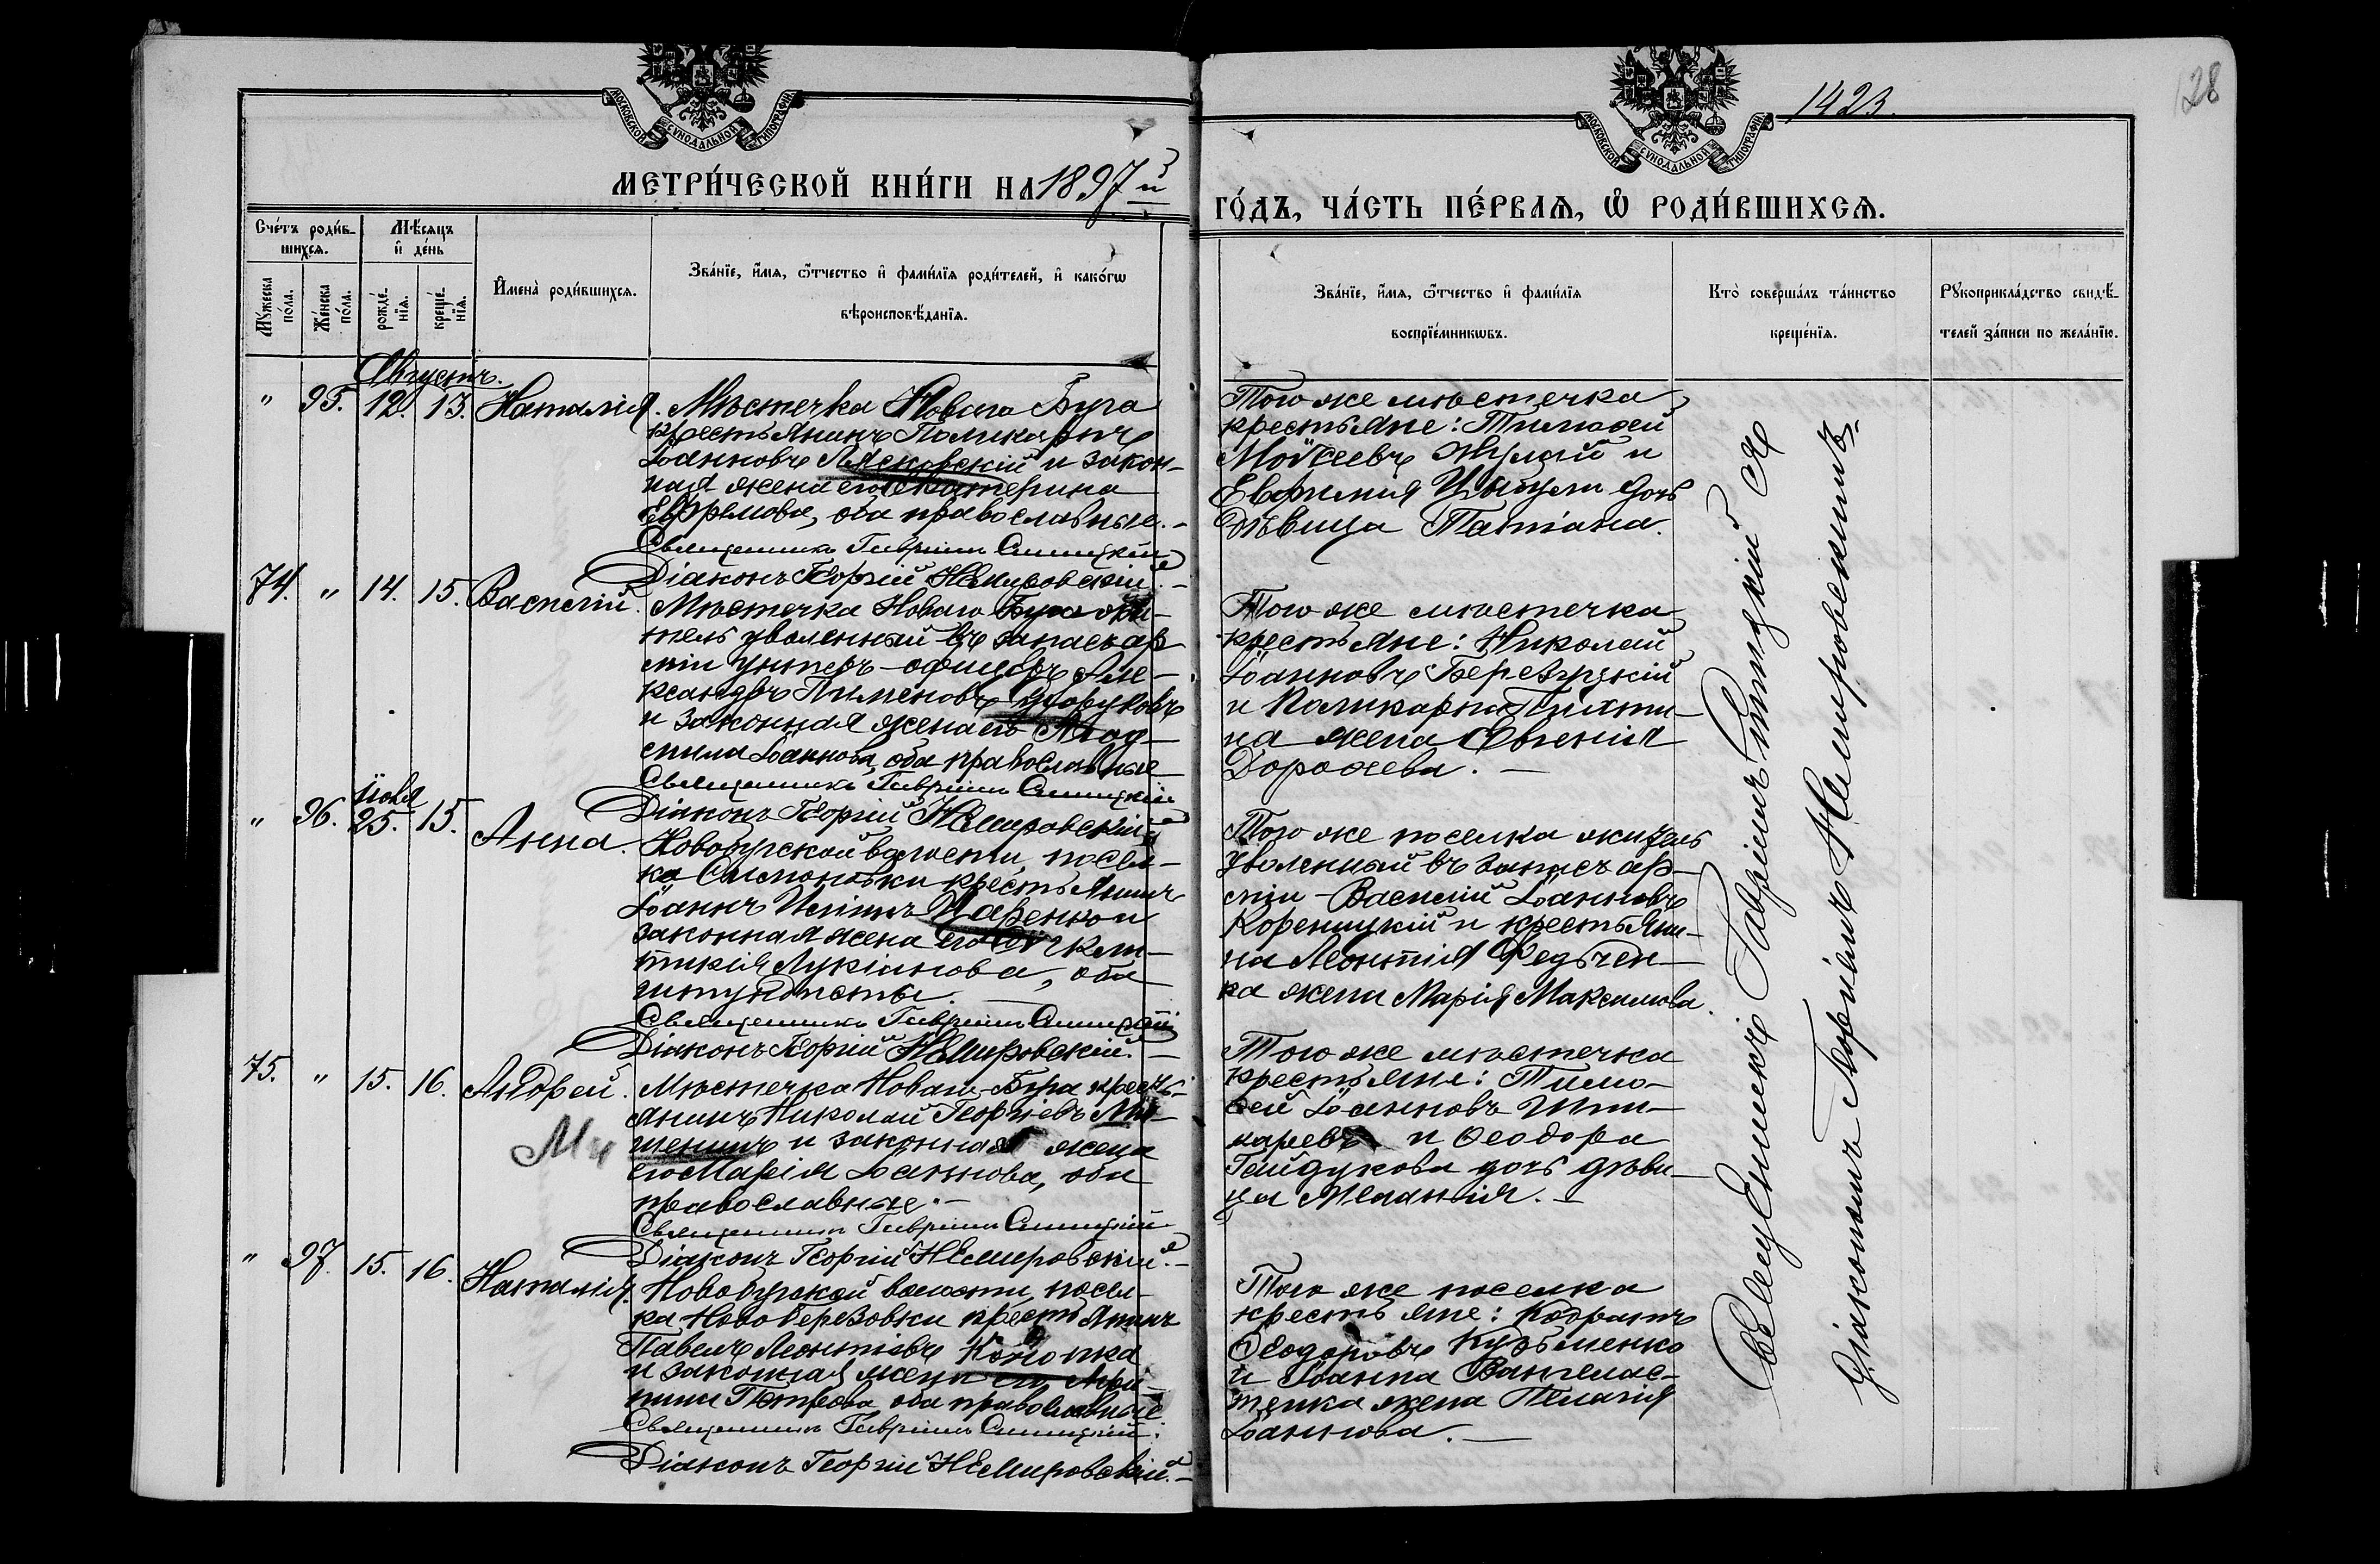 128
1423.
МОСКОВСКОЙ СѴНОДАЛЬНОЙ ТИПОГРАФІИ
МОСКОВСКОЙ СѴНОДАЛЬНОЙ ТИПОГРАФІИ
МЕТРИ́ЧЕСКОЙ КНИ́ГИ НА 1897й
ГО́ДЪ, ЧА́СТЬ ПЕ́РВАѦ, Ѡ҆ РОДИ́ВШИХСѦ.
Сче́тъ роди́в-
шихсѧ.
Мѣ́сѧцъ
и҆ де́нь
Мꙋ́жеска
по́ла.
Же́нска
по́ла.
рожде́-
нїѧ.
креще́-
нїѧ.
И҆мена̀ роди́вшихсѧ.
Зва́нїе, и҆́мѧ, ѻ҆́тчество и҆ фами́лїѧ роди́телей, и҆ како́гѡ
вѣроисповѣ́данїѧ.
Зва́нїе, и҆́мѧ, ѻ҆́тчество и҆ фами́лїѧ
воспрїе́мникѡвъ.
Кто̀ соверша́лъ та́инство
креще́нїѧ.
Рꙋкоприкла́дство свидѣ́-
телей за́писи по жела́нїю.
Августъ.
" 95. 12. 13. Наталія.
Мѣстечка Новаго Буга
крестьянинъ Поликарпъ
Іоанновъ Лясковскій и закон-
ная жена его Екатерина
Ефремова, оба православные.-
Священникъ Гавріилъ Синицкій
Діаконъ Георгій Немировскій.-
Того же мѣстечка
крестьяне: Тимофей
Моѵсеевъ и
Евфимія дочь
дѣвица Татіана.
74. " 14. 15. Василій.
Мѣстечка Новаго Буга жи-
тель уволенный въ запасъ ар-
міи унтеръ-офицеръ Але-
ксандръ Пименовъ
и законная жена его Люд-
мила Іоаннова, оба православные
Священникъ Гавріилъ Синицкій
Діаконъ Георгій Немировскій
Того же мѣстечка
крестьяне: Николай
Іоанновъ Березуцкій
и Поликарпа
на жена Евгенія
Дорофеева.-
Іюня
" 96. 25. 15. Анна.
Новобугской волости, посел-
ка Симоновки крестьянинъ
Іоаннъ Царенко и
законная жена его
Лукіанова, оба
штундисты.-
Священникъ Гавріилъ Синицкій
Діаконъ Георгій Немировскій.-
Того же поселка житель
уволенный въ запасъ ар-
міи - Василій Іоанновъ
Кореницкій и крестьяни-
на Леонтія Федчен-
ка жена Марія Максимова.
75. " 15. 16. Андрей.
Мѣстечка Новаго Буга кресть-
янинъ Николай Георгіевъ Ми-
шенинъ и законная жена
его Марія Іоаннова, оба
православные.-
Священникъ Гавріилъ Синицкій
Діаконъ Георгій Немировскій.-
Ми
Того же мѣстечка
крестьяне: Тимо-
фей Іоанновъ
и Феодора
Гайдукова дочь дѣви-
ца Меланія.-
" 97. 15. 16. Наталія.
Новобугской волости, посел-
ка Новоберезовки крестьянинъ
Павелъ Леонтіевъ Кононка
и законная жена его Ири-
на Петрова оба православные.
Священникъ Гавріилъ Синицкій.
Діаконъ Георгій Немировскій.-
Того же поселка
крестьяне: Кодратъ
Феодоровъ Кузьменко
и Іоанна
жена Пелагія
Іоаннова.-
Священникъ Гавріилъ Синицкій съ
Діакономъ Георгіемъ Немировскимъ.